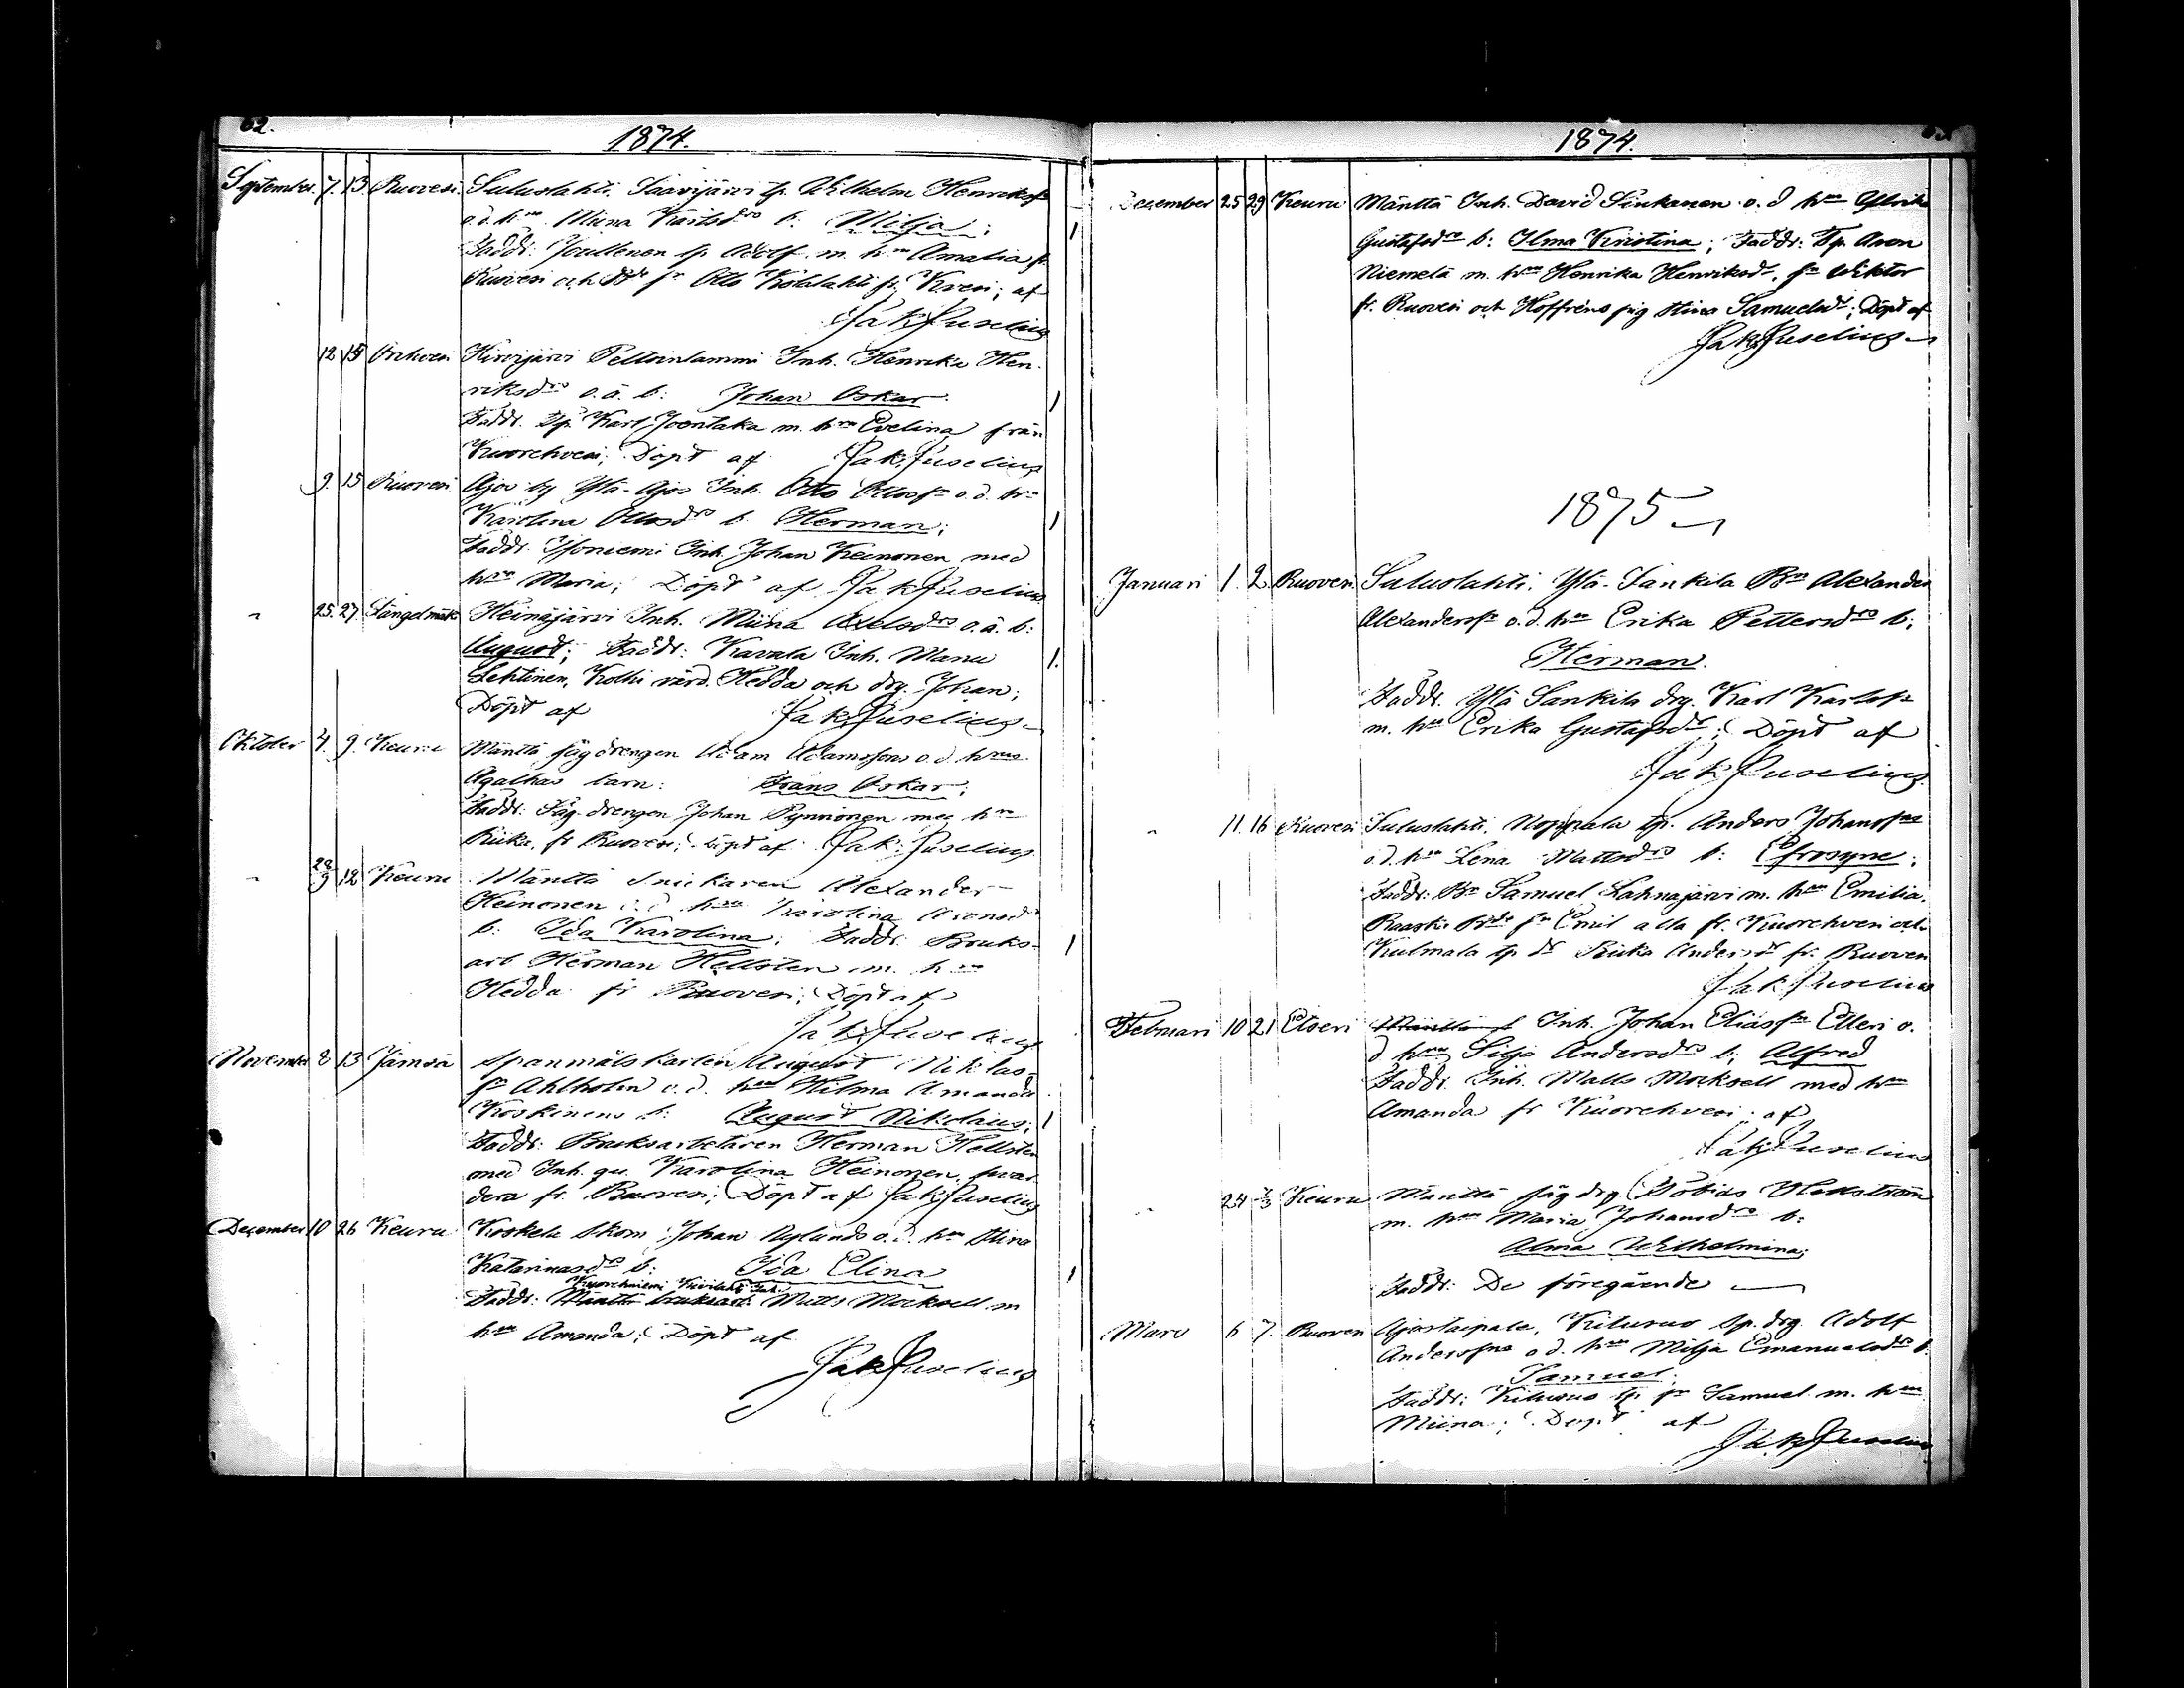 62.
1874.
September. 7. 13. Ruovesi. Saluslahti. Saarijärvi tp. Wilhelm Henrikss
o.d. hn Miina Karlsdrs b: Milja;
Faddr: Joullenen tp. Adolf m. hu Amalia fr
Ruovesi och Bde sn Otto Kolulahti fr. Kvesi; af
Jak. Juselius
12 15 Orihvesi Hirvijärvi Peltoinlammi Inh. Henrika Hen-
riksdrs o.ä. b: Johan Oskar.
Faddr. Tp. Karl Joentaka m. hru Evelina från
Kuorehvesi; Döpt af Jak. Juselius
9. 15 Ruovesi. Ajos by Ylä-Ajos Inh. Otto Ottoss o.d. hrs
Karolina Ottosdrs b. Herman;
Faddr. Isoniemi Inh. Johan Keinonen med
hru Maria; Döpt af Jak Juselius
" 25. 27. Längelmäki Heinäjärvi Inh. Miina Axelsdrs o.ä. b:
August; Faddr: Kavala Inh. Manu
Lehtinen, Kolhi värd. Hedda och drg. Johan;
Döpt af Jak. Juselius
Oktober 4. 9. Keuru Mänttä sågdrengen Adam Adamssons o.d. hrus
Agathas barn: Frans Oskar;
Faddr: Såg-drengen Johan Pynnönen med hru
Riika, fr Ruovesi; Döpt af Jak. Juselius
" 28/9 12 Keuru Mänttä Snickaren Alexander
Heinonen o.d. hru Karolina Aronsdr
b: Ida Karolina; Faddr: Bruks-
arb Herman Hellsten m. hru
Hedda fr Ruovesi; Döpt af
Jak. Juselius
November 8 13 Jämsä Spanmålskarlen August Niklas-
sn Ahlholm o.d. hru Hilma Amanda
Koskinens b: August Nikolaus;
Faddr: Bruksarbetaren Herman Hellsten
med Inh. qu. Karolina Heinonen, hvar-
dera fr. Ruovesi; Döpt af Jak. Juselius
December 10 26 Keuru Koskela Skom. Johan Nylunds o.d. hru Stina
Katarinasdr b: Ida Elina
Kuorehniemi Kivilahti Inh.
Faddr: Mänttä bruksarb. Matts Mocksell m
hru Amanda; Döpt af
Jak Juselius
1874.
December 25 29 Keuru Mänttä Inh. David Sinkanen o.d hru Ulrika
Gustafsdrs b: Ilma Kristina; Faddr: Tp. Aron
Niemelä m. hru Henrika Henriksdr, sn Wiktor
fr. Ruovesi och Hoffréns pig Stina Samuelsdr; Döpt af
Jak. Juselius
1875
Januari 1. 2 Ruovesi Saluslahti. Ylä-Sankila Bn Alexander
Alexanderss o.d. hru Erika Pettersdrs b:
Herman.
Faddr. Ylä Sankila drg. Karl Karlss
m. hru Erika Gustafsdr; Döpt af
Jak Juselius
" 11. 16 Ruovesi Saluslahti, Noppala tp. Anders Johanssns
o.d. hru Lena Mattsdrs b: Efrosyne;
Faddr: Bn Samuel Lahnajärvi m. hru Emilia.
Raaski Bde sn Emil alla fr. Kuorehvesi och
Kulmala tp dr Riika Andersdr fr. Ruovesi
Jak Juselius
Februari 10 21 Etseri Mänttä Inh. Johan Eliassn Elleri o.
d hru Silja Andersdrs b; Alfred
Faddr. Inh. Matts Mocksell med hru
Amanda fr Kuorehvesi; af
Jak Juselius
24 7/3 Keuru Mänttä såg drg Tobias Hellström
m. hru Maria Johansdrs b:
Alma Wilhelmina;
Faddr: De föregående
Mars 6 7. Ruovesi Ajostaipale, Kilusuo tp. drg. Adolf
Anderssns o.d. hru Milja Emanuelsdrs b.
Samuel;
Faddr: Kilusuo tp. sn Samuel m. hru
Miina; Döpt af
Jak Juselius